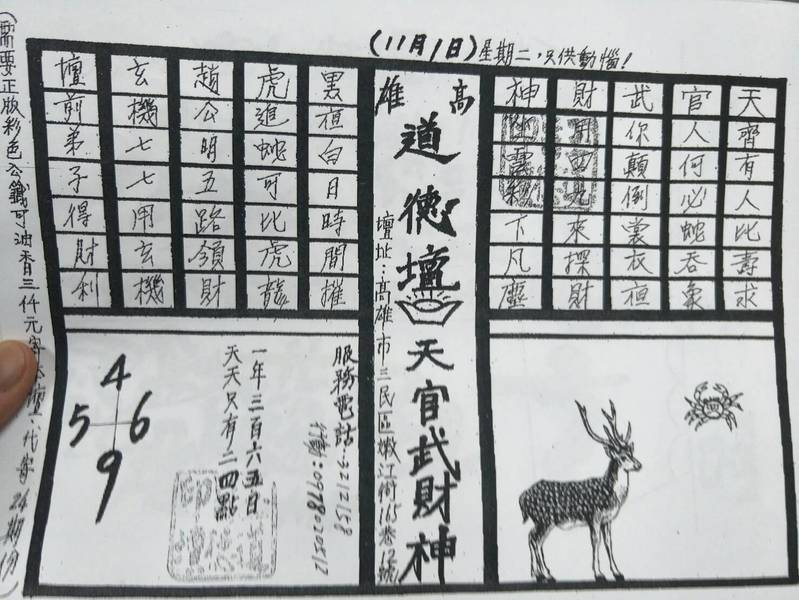 (11月1日)星期二，只供動惱！
天齊有人比壽求
官人何必蛇吞象
武你顛倒裳衣袒
財來探財
神下凡塵
高雄
道德壇
天官武財神
壇址：高雄市三民區嫩江街165巷12號
黑桓白日時間摧
虎追蛇可比虎龍
趙公明五路領財
玄機七七用玄機
壇前弟子得財利
服務電話
3212158
行動：0978020512
一年三百六五日
天天只有二四點
4
5 6
9
(需要正版彩色公籤可油香三仟元寄
代寄24期份)